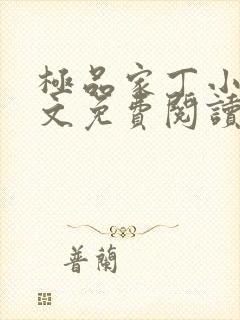 極品家丁小
文免費閱讀
普蘭